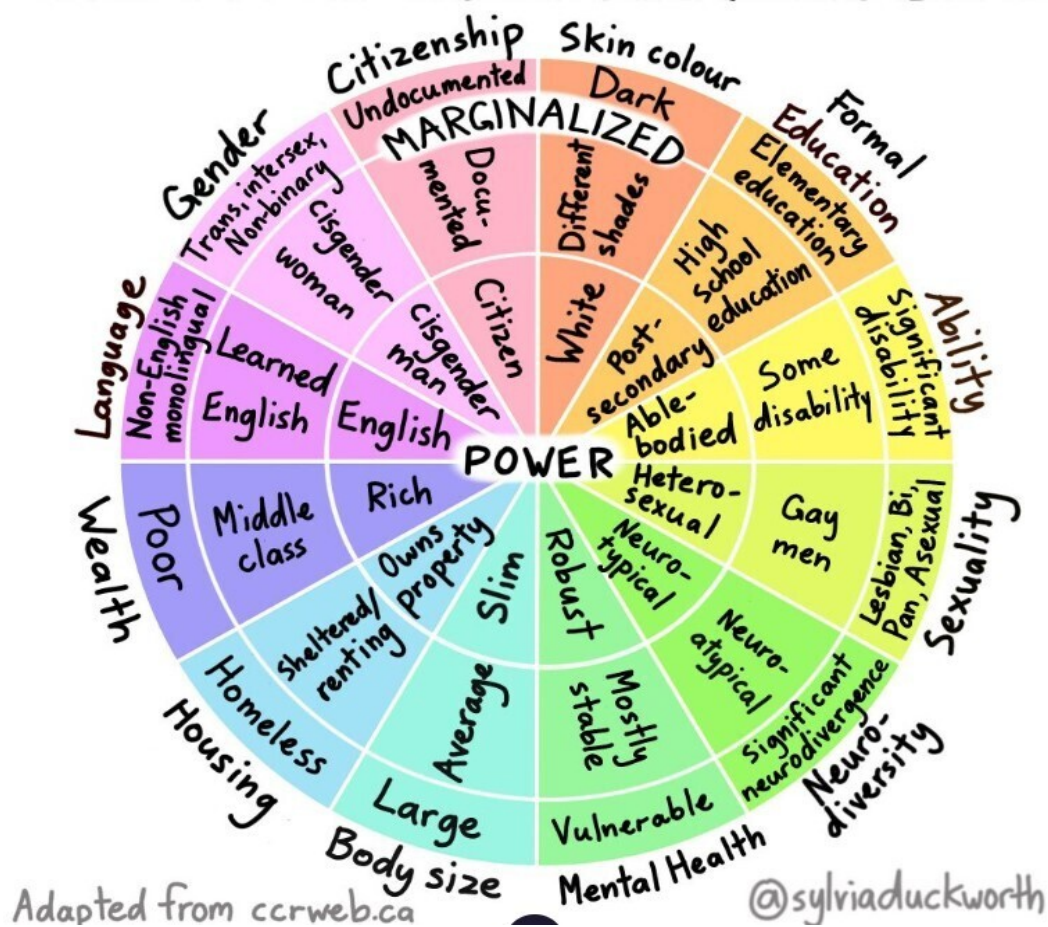 Citizenship
Undocumented
Docu-
mented
Citizen
Skin colour
Dark
Different
shades
White
Formal
Education
Elementary
education
High
school
education
Post-
secondary
Ability
Significant
disability
Some
disability
Able-
bodied
Sexuality
Lesbian, Bi,
Pan, Asexual
Gay
men
Hetero-
sexual
Neuro-
diversity
Significant
neurodivergence
Neuro-
atypical
Neuro-
typical
Mental Health
Vulnerable
Mostly
stable
Robust
Body size
Large
Average
Slim
Housing
Homeless
Sheltered/
renting
Owns
property
Wealth
Poor
Middle
class
Rich
Language
Non-English
monolingual
Learned
English
English
Gender
Trans, intersex,
Non-binary
cisgender
woman
cisgender
man
MARGINALIZED
POWER
Adapted from ccrweb.ca
@sylviaduckworth